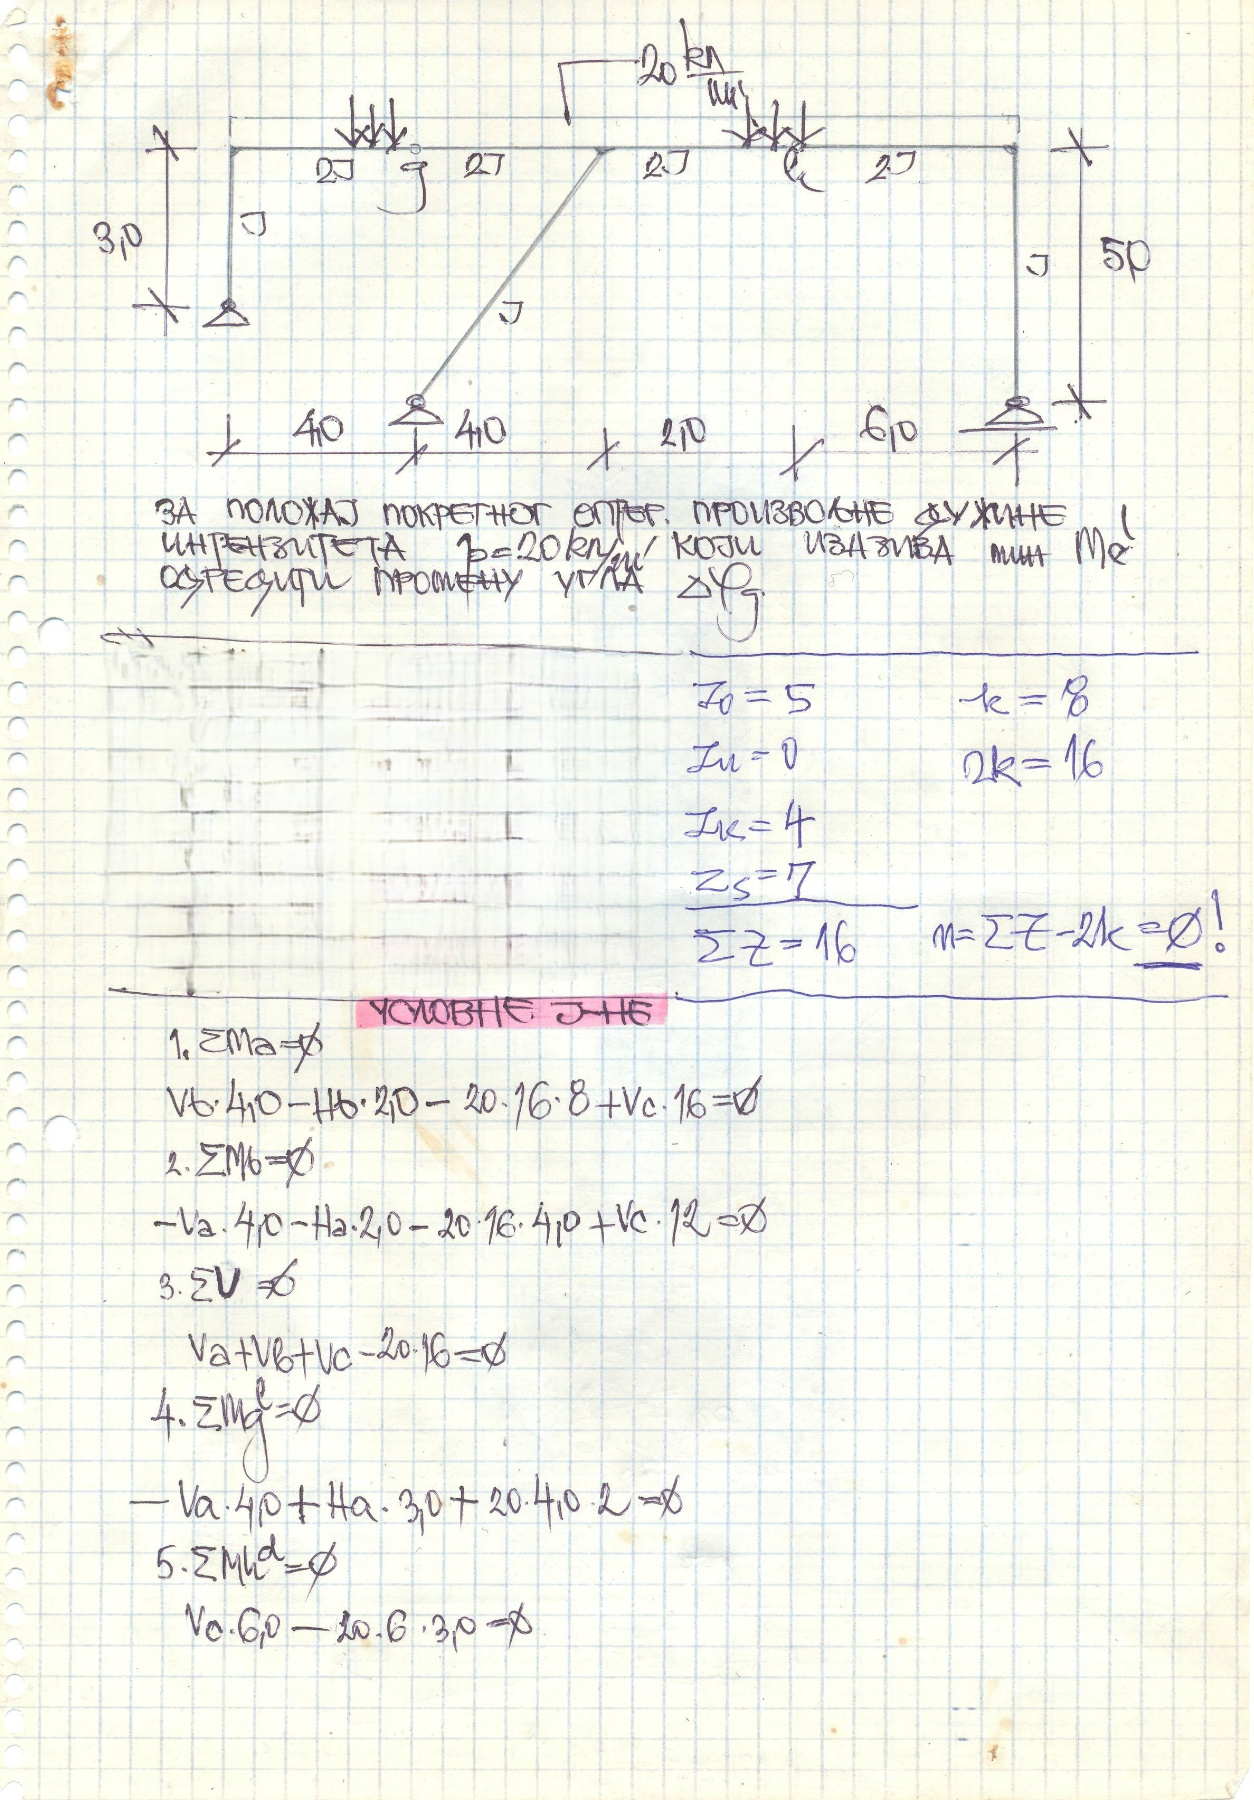 20 kn/m'
2J g 2J 2J h 2J
3,0 J J J 5,0
4,0 4,0 2,0 6,0
ЗА ПОЛОЖАЈ ПОКРЕТНОГ ОПТЕР. ПРОИЗВОЉНЕ ДУЖИНЕ
ИНТЕНЗИТЕТА p=20kn/m' КОЈИ ИЗАЗИВА мин
ОДРЕДИТИ ПРОМЕНУ УГЛА Δφg
Zo = 5 k = 8
Zu = 0 2k = 16
Zk = 4
Zs = 7
ΣZ = 16 n = ΣZ - 2k = Ø!
УСЛОВНЕ Ј-НЕ
1. ΣMa = Ø
Vb·4,0 - Hb·2,0 - 20·16·8 + Vc·16 = Ø
2. ΣMb = Ø
-Va·4,0 - Ha·2,0 - 20·16·4,0 + Vc·12 = Ø
3. ΣV = Ø
Va + Vb + Vc - 20·16 = Ø
4. ΣMg^l = Ø
- Va·4,0 + Ha·3,0 + 20·4,0·2 = Ø
5. ΣMh^d = Ø
Vc·6,0 - 20·6·3,0 = Ø